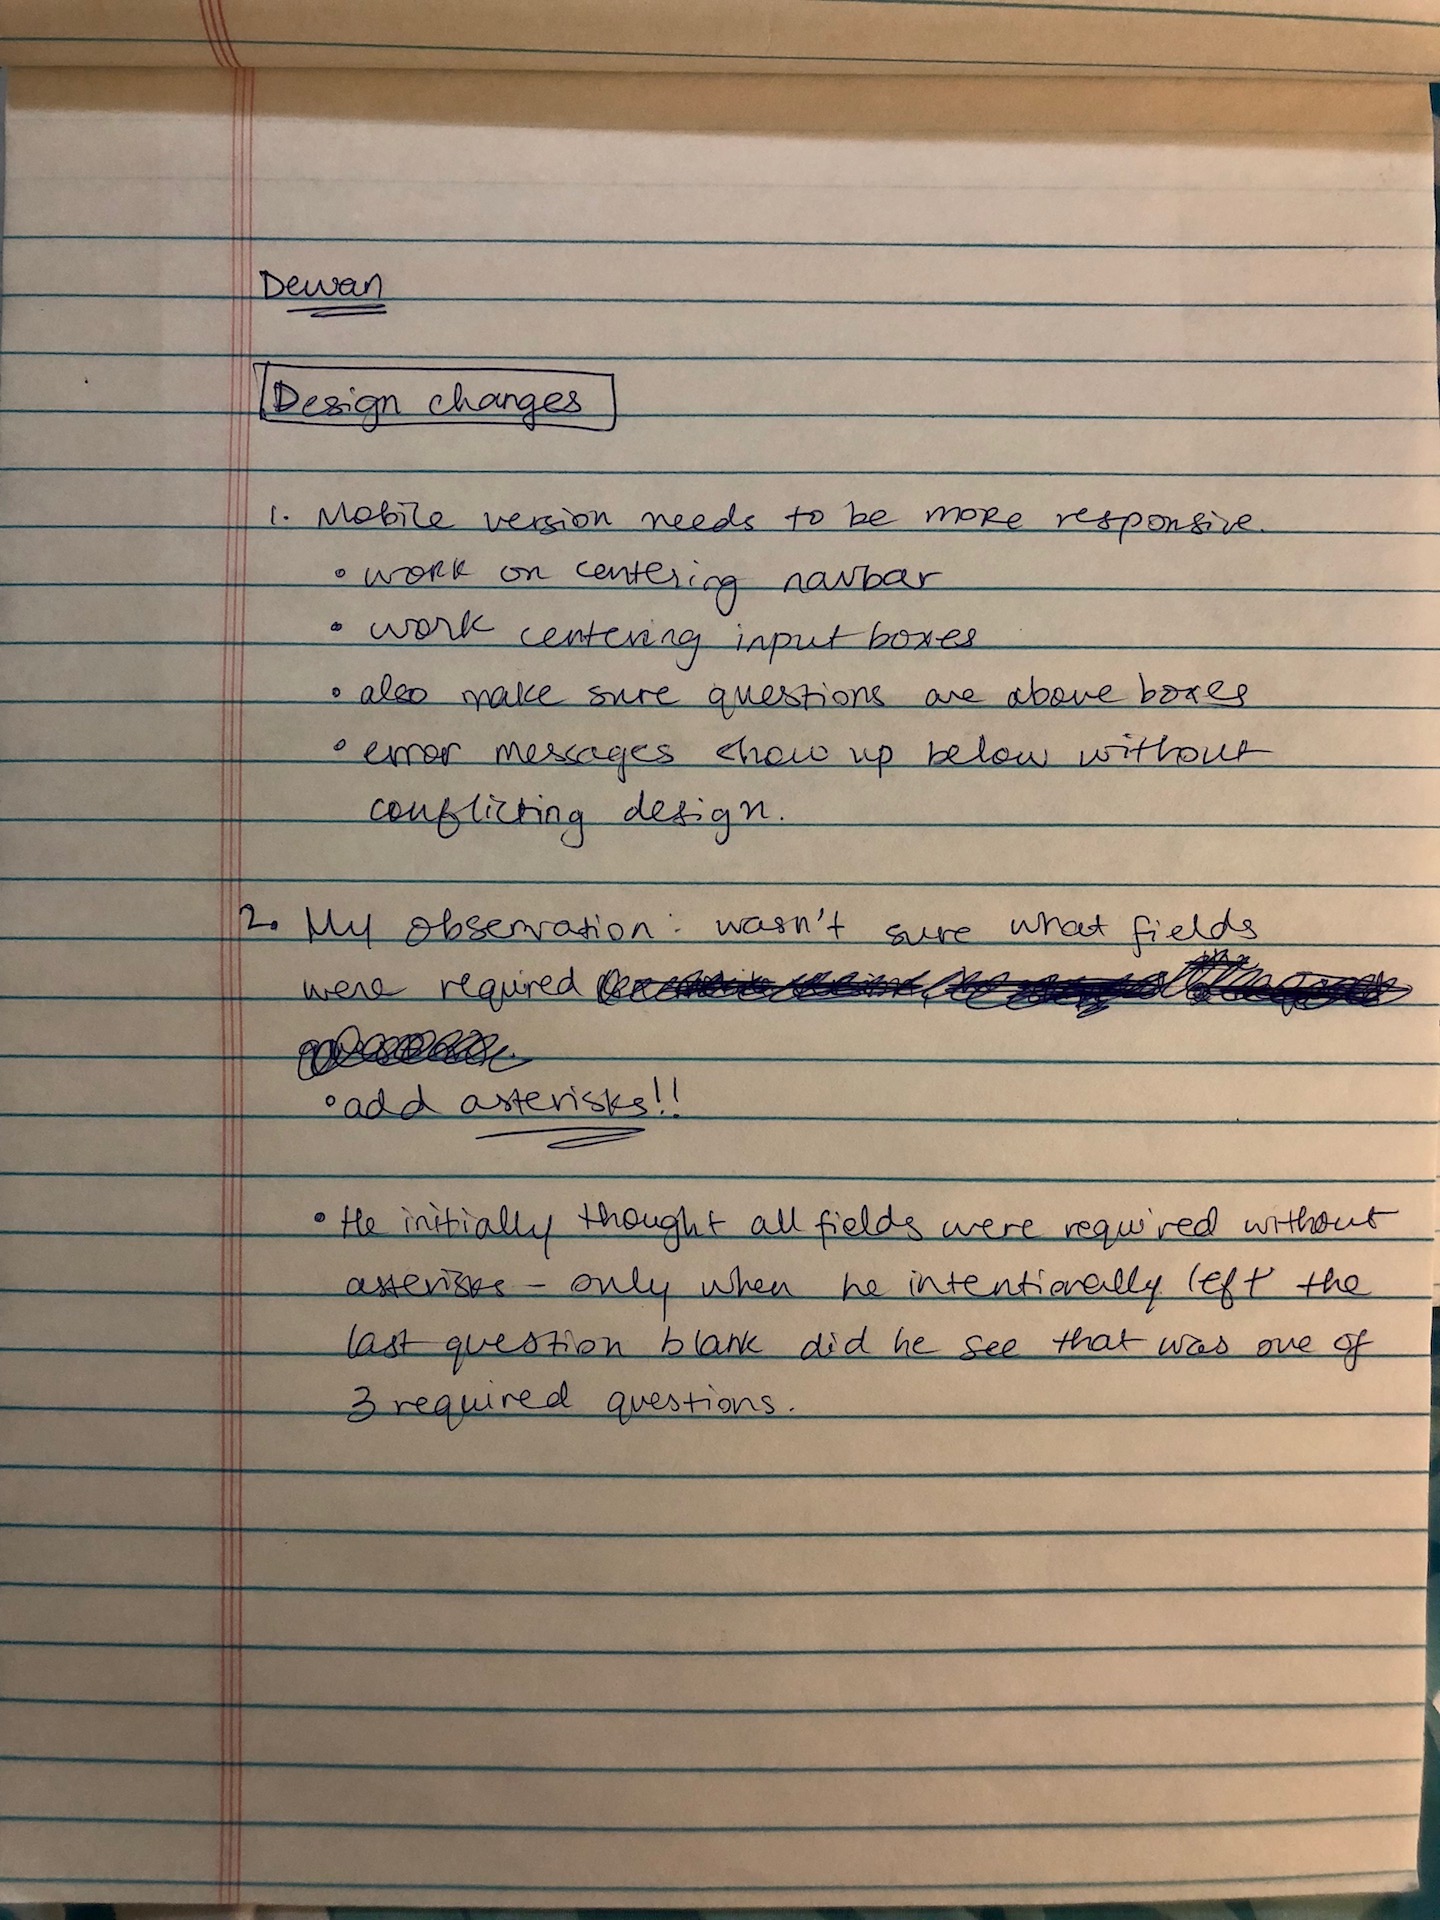 Dewan
Design changes
1. Mobile version needs to be more responsive.
• work on centering navbar
• work centering input boxes
• also make sure questions are above boxes
• error messages show up below without
conflicting design.
2. My observation: wasn't sure what fields
were required
• add asterisks!!
• He initially thought all fields were required without
asterisks - only when he intentionally left the
last question blank did he see that was one of
3 required questions.